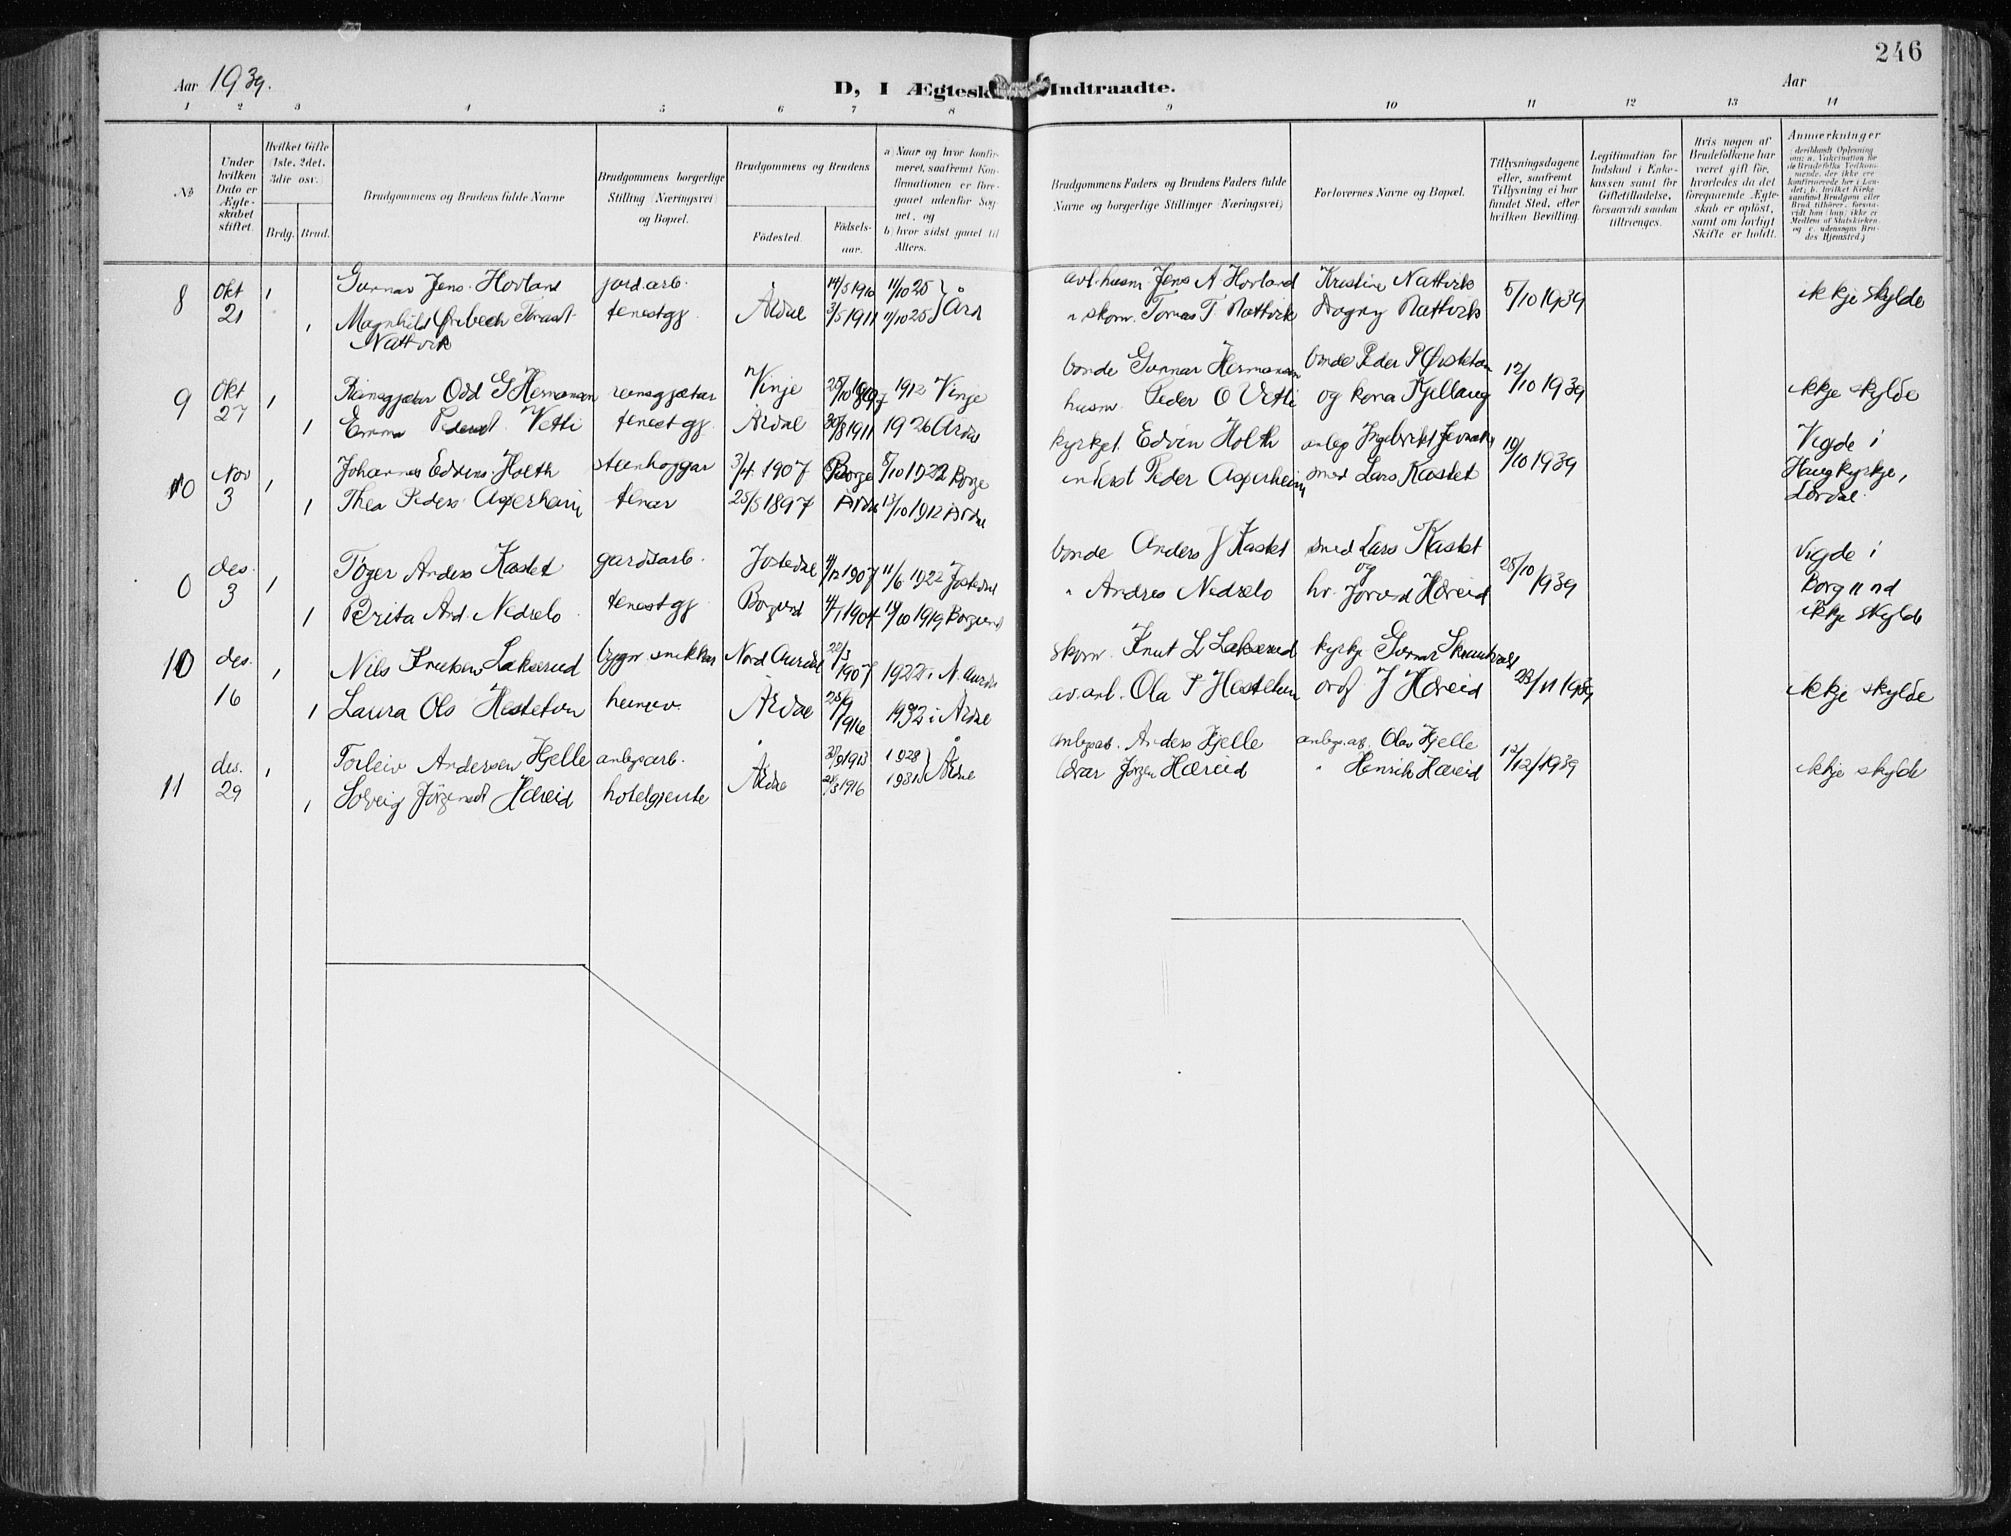 246
Aar 1939.
D, I Ægtesk Indtraadte.
Aar
1 2 3 4 5 6 7 8 9 10 11 12 13 14
No
Under hvilken Dato er Ægteskabet stiftet.
Hvilket Gifte (1ste, 2det, 3die osv.
Brdg. Brud.
Brudgommens og Brudens fulde Navne
Brudgommens borgerlige Stilling (Næringsvei) og Bopæl.
Brudgommens og Brudens
Fødested. Fødselsaar.
a) Naar og hvor konfirmeret, saafremt Konfirmationen er foregaaet udenfor Sognet, og
b) hvor sidst gaaet til Alters.
Brudgommens Faders og Brudens Faders fulde Navne og borgerlige Stillinger (Næringsvei)
Forlovernes Navne og Bopæl.
Tillysningsdagene eller, saafremt Tillysning ei har fundet Sted, efter hvilken Bevilling.
Legitimation for Indskud i Enkekassen samt for Giftetilladelse, forsaavidt saadan tiltrænges.
Hvis nogen af Brudefolkene har været gift før, hvorledes da det foregaaende Ægteskab er opløst, samt om lovligt Skifte er holdt.
Anmærkninger
8 Okt 21 1 Gunnar Jens. Hovland jord.arb. 14/5 1910 11/10 25 Jens A Hovland Kristine Nattvik 5/10 1939 ikkje skylde
1 Magnhild Ørebech Tomasd. Nattvik tenestgj. Årdal 3/5 1911 11/10 25 Ård skom. Tomas T. Nattvik Dagny Nattvik
9 Okt 27 1 Reinsgjætar Odd G Hermansen reinsgjætar Vinje 1912 Vinje bonde Gunnar Hermansen bonde Peder P 12/10 1939 ikkje skylde
1 Emma Pedersd. Vetti tenestgj. Årdal 30/8 1911 1926 Årdal husm. Peder O Vetti og kona Kjellaug
10 Nov 3 1 Johannes Edvins. Holth steinhoggar 3/4 1907 Borge 8/10 1922 Borge kyrkjet. Edvin Holth 19/10 1939 Vigde i Haugkyrkje, Lærdal.
1 Thea Peders. Asperheim tenar 25/5 1897 Årdal 13/10 1912 Årdal inderst Peder Asperheim smed Lars Kastet
0 des. 3 1 Tøger Anders Kastet gardsarb. Jostedal 1907 11/6 1922 Jostedal bonde Anders J Kastet smed Lars Kastet og 28/10 1939 Vigde i Borgund
1 Brita And. Nedrelo tenestgj Borgund 1904 1919 Borgund " Andres Nedrelo hr. Jørund Hæreid ikkje skylde
10 des. 16 1 Nils Knutsen Lakserud bygn. snikkar Nord Aurdal 22/3 1907 1922 i N. Aurdal skom. Knut L Lakserud kyrkje Gunnar 23/11 1939 ikkje skylde
1 Laura Ols Hestetun heimev. Årdal 1916 1932 i Årdal av.arb. Ola P Hestetun ordf. J Hæreid
11 des. 29 1 Torleiv Andersen Hjelle anlegsarb. Årdal 1913 1928 Årdal anlegsarb. Anders Hjelle anlegs.arb. Olav Hjelle 12/12 1939 ikkje skylde
1 Solveig Jørgensd Hæreid hotelgjente 1916 1931 Jørgen Hæreid " Henrik Hæreid